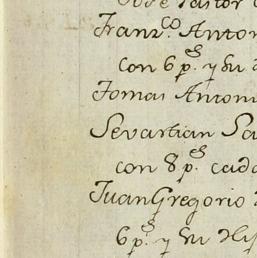 Jose Pastor
Franz.co Anton
con 6 p.s y su
Tomas Antoni
Sevastian Sa
con 8 p.s cada
Juan Gregorio
6 p.s y su Hij